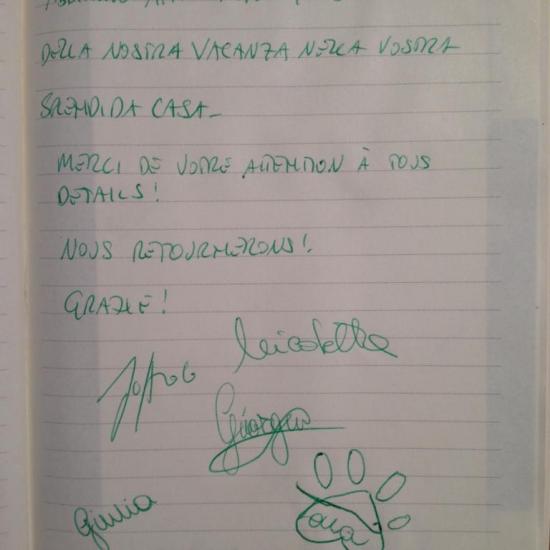 DELLA NOSTRA VACANZA NELLA VOSTRA
SPLENDIDA CASA_
MERCI DE VOTRE ATTENTION À TOUS
DETAILS!
NOUS RETOURNERONS!
GRAZIE!
Nicoletta
Giorgio
Giulia